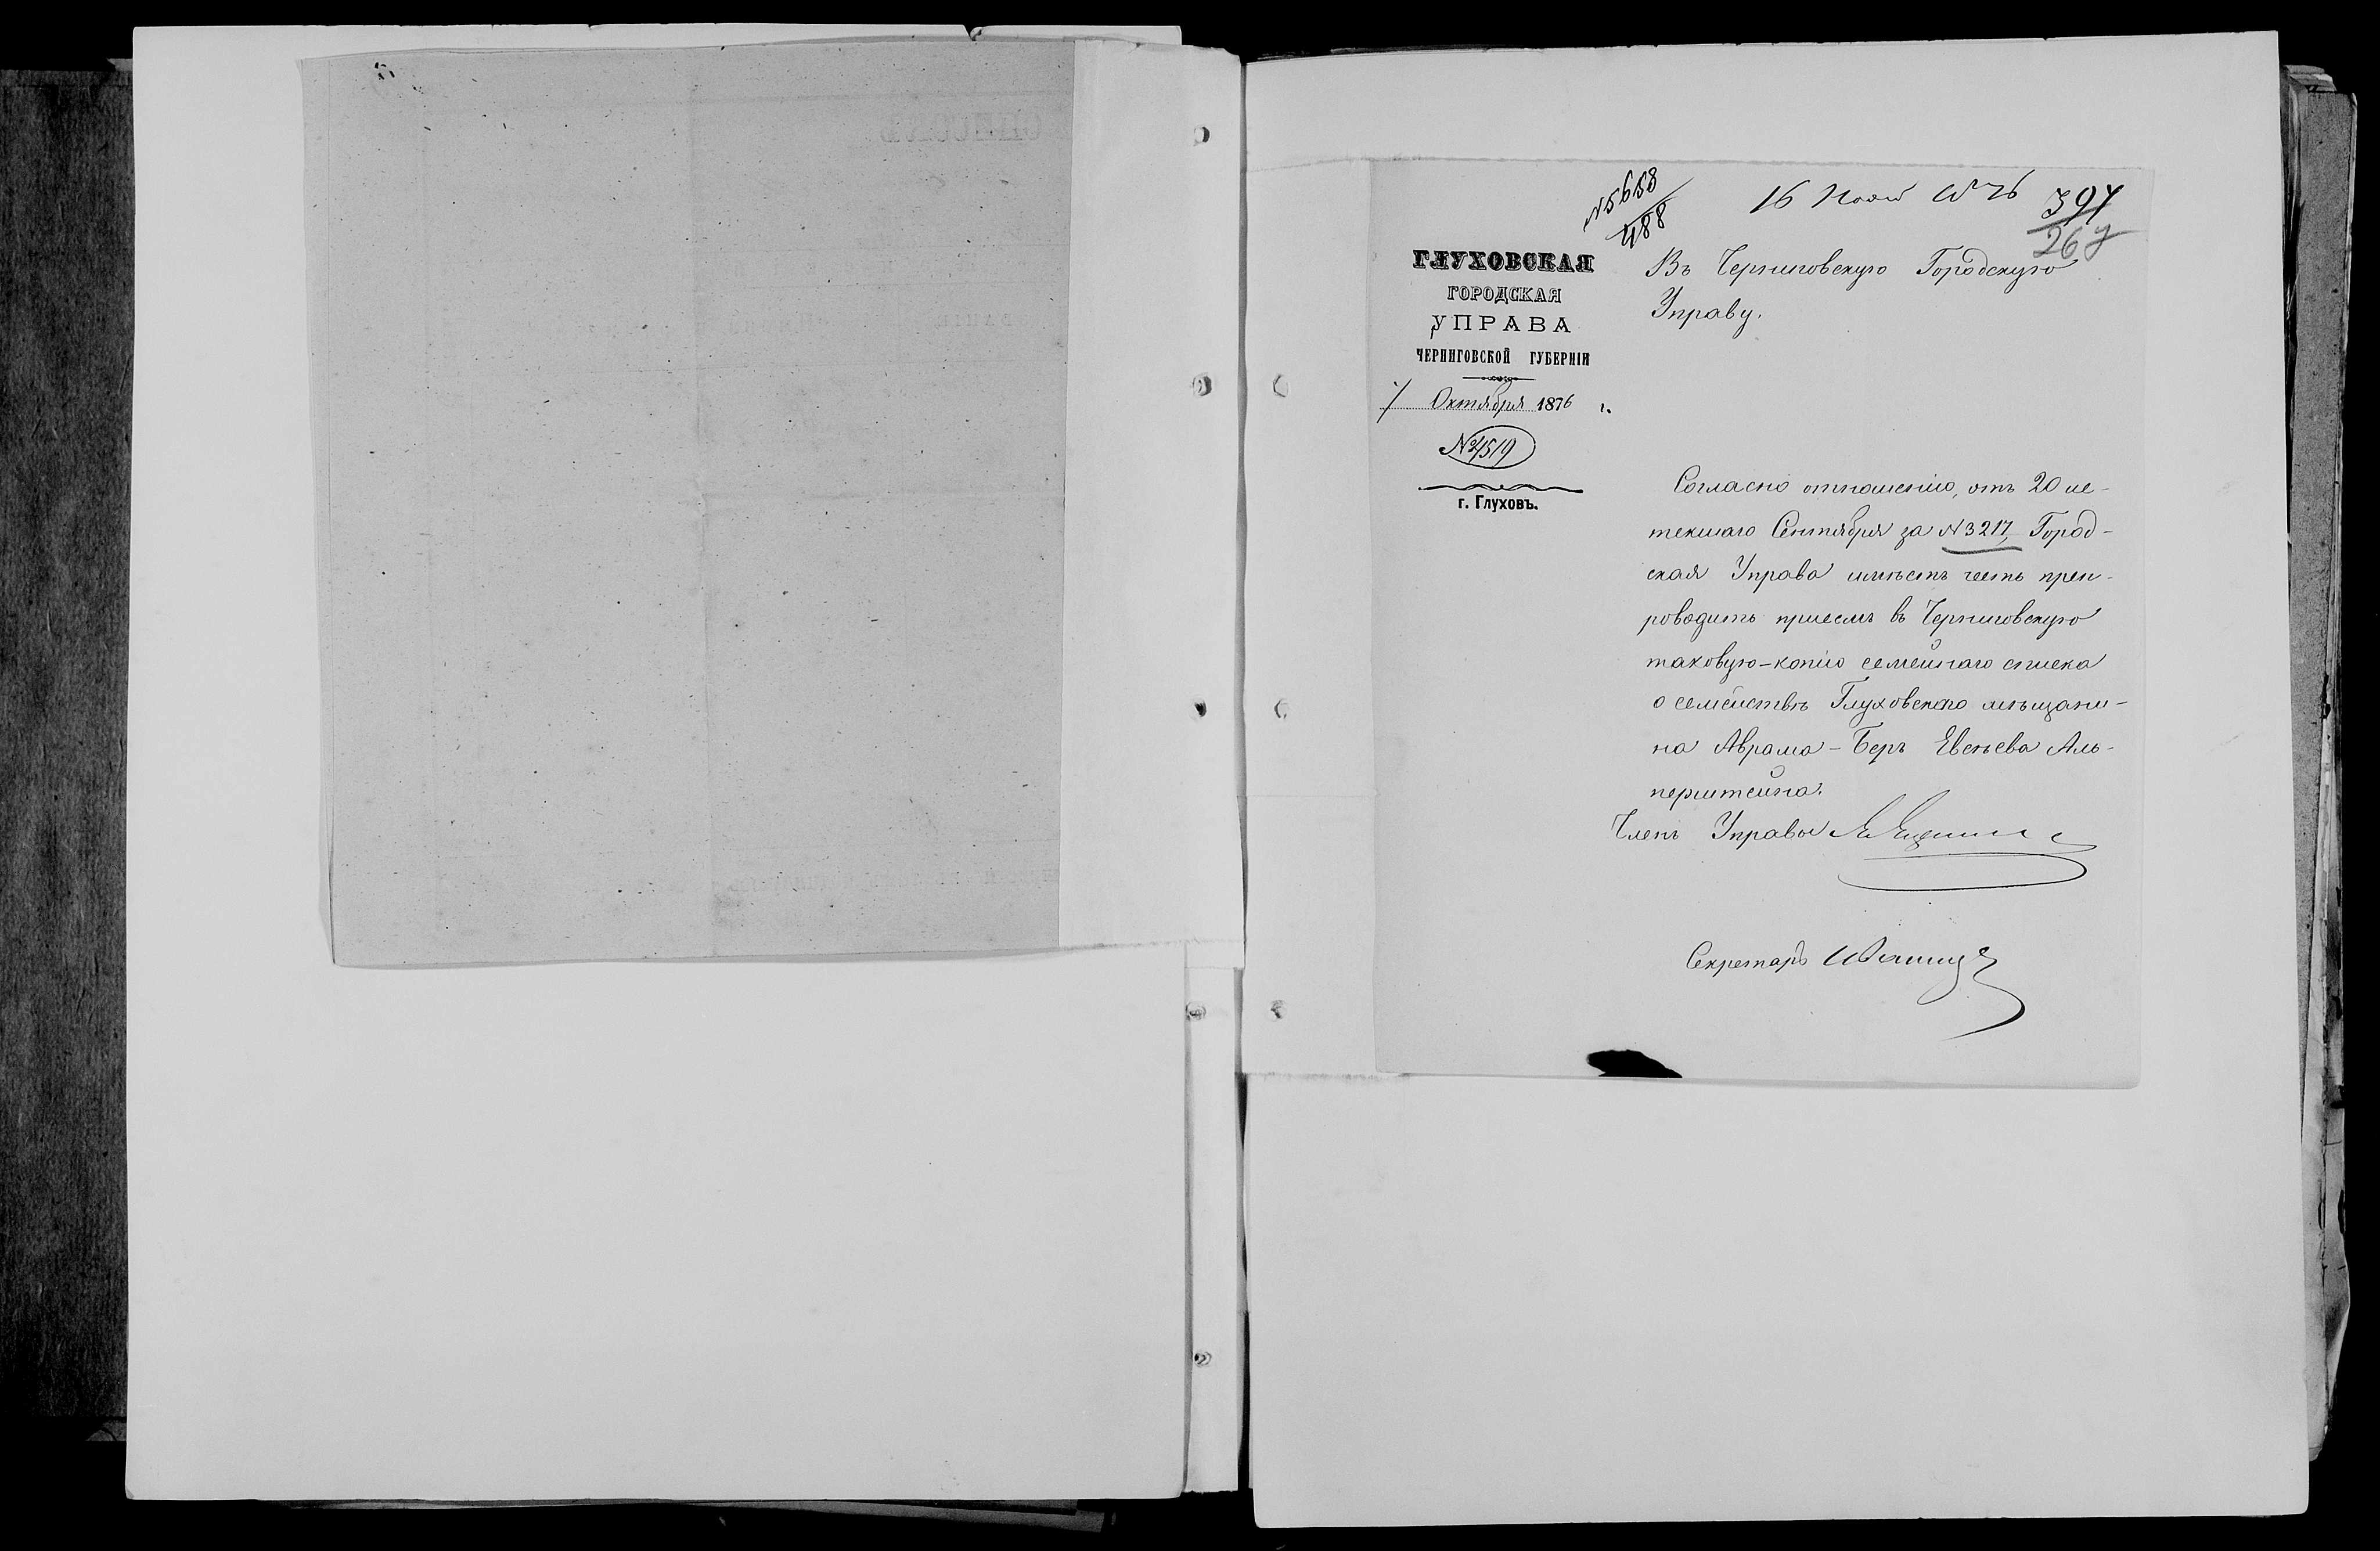 № 5658
488
16 Нояб
394
267
ГЛУХОВСКАЯ
ГОРОДСКАЯ
УПРАВА
ЧЕРНИГОВСКОЙ ГУБЕРНІИ
7 Октября 1876 г.
№ 4519
г. Глуховъ.
Въ Черниговскую Городскую
Управу.
Согласно отношенію, отъ 20 ис-
текшаго Сентября за № 3217, Город-
ская Управа имѣетъ честь преп-
роводить присемъ въ Черниговскую
таковую-копію семейнаго списка
о семействѣ Глуховскаго мѣщани-
на Аврама-Беръ Евсѣева Аль-
перштейна.
Членъ Управы
Секретарь